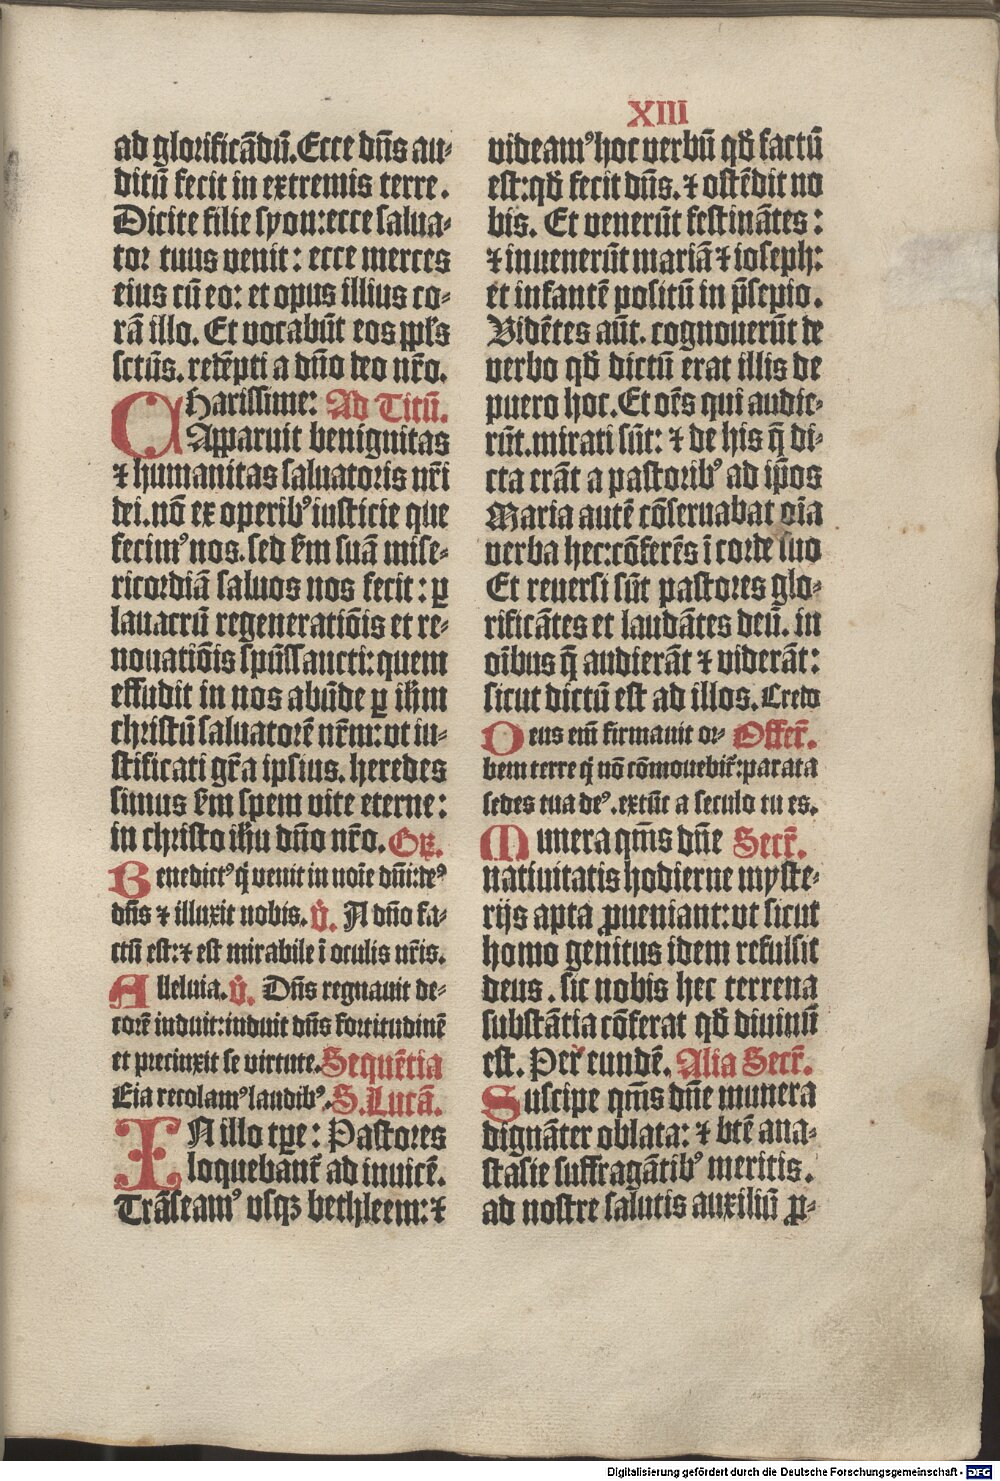 XIII
ad glorificādū. Ecce dn̄s au⸗
ditū fecit in extremis terre.
Dicite filie syon: ecce salua⸗
tor tuus venit: ecce merces
eius cū eo: et opus illius co⸗
rā illo. Et vocabūt eos ppl̄s
sctūs. redēpti a dn̄o deo nr̄o.
CHarissime: Ad Titū.
Apparuit benignitas
⁊ humanitas saluatoris nr̄i
dei. nō ex operibꝰ iusticie que
fecimꝰ nos. sed s̄m suā mise⸗
ricordiā saluos nos fecit: ꝑ
lauacrū regeneratiōis et re⸗
nouatiōis spūssancti: quem
effudit in nos abūde ꝑ ih̄m
christū saluatorē nr̄m: vt iu⸗
stificati gr̄a ipsius. heredes
simus s̄m spem vite eterne:
in christo ih̄u dn̄o nr̄o. Gr̄.
Benedictꝰ q̇ venit in noīe dn̄i: deꝰ
dn̄s ⁊ illuxit nobis. v̄. A dn̄o fa⸗
ctū est: ⁊ est mirabile ī oculis nr̄is.
Alleluia. v̄. Dn̄s regnauit de⸗
corē induit: induit dn̄s fortitudinē
et precinxit se virtute. Sequētia
Eia recolamꝰ laudibꝰ. S. Lucā.
IN illo tꝑe: Pastores
loquebant̄ ad inuicē.
Trāseamꝰ vsqꝫ bethleem: ⁊
videamꝰ hoc verbū qd̄ factū
est: qd̄ fecit dn̄s. ⁊ ostēdit no
bis. Et venerūt festinātes:
⁊ inuenerūt mariā ⁊ ioseph:
et infantē positū in p̄sepio.
Vidētes aūt. cognouerūt de
verbo qd̄ dictū erat illis de
puero hoc. Et oēs qui audie⸗
rūt. mirati sūt: ⁊ de his q̄ di⸗
cta erāt a pastoribꝰ ad ip̄os
Maria autē cōseruabat oīa
verba hec: cōferēs ī corde suo
Et reuersi sūt pastores glo⸗
rificātes et laudātes deū. in
oībus q̄ audierāt ⁊ viderāt:
sicut dictū est ad illos. Credo
Deus em̄ firmauit or⸗ Offer̄.
bem terre q̇ nō cōmouebit̄: parata
sedes tua deꝰ. extūc a seculo tu es.
Munera qm̄s dn̄e Secr̄.
natiuitatis hodierne myste⸗
rijs apta ꝓueniant: vt sicut
homo genitus idem refulsit
deus. sic nobis hec terrena
substātia cōferat qd̄ diuinū
est. Per eundē. Alia Secr̄.
Suscipe qm̄s dn̄e munera
dignāter oblata: ⁊ btē ana⸗
stasie suffragātibꝰ meritis.
ad nostre salutis auxiliū ꝓ⸗
Digitalisierung gefördert durch die Deutsche Forschungsgemeinschaft - DFG